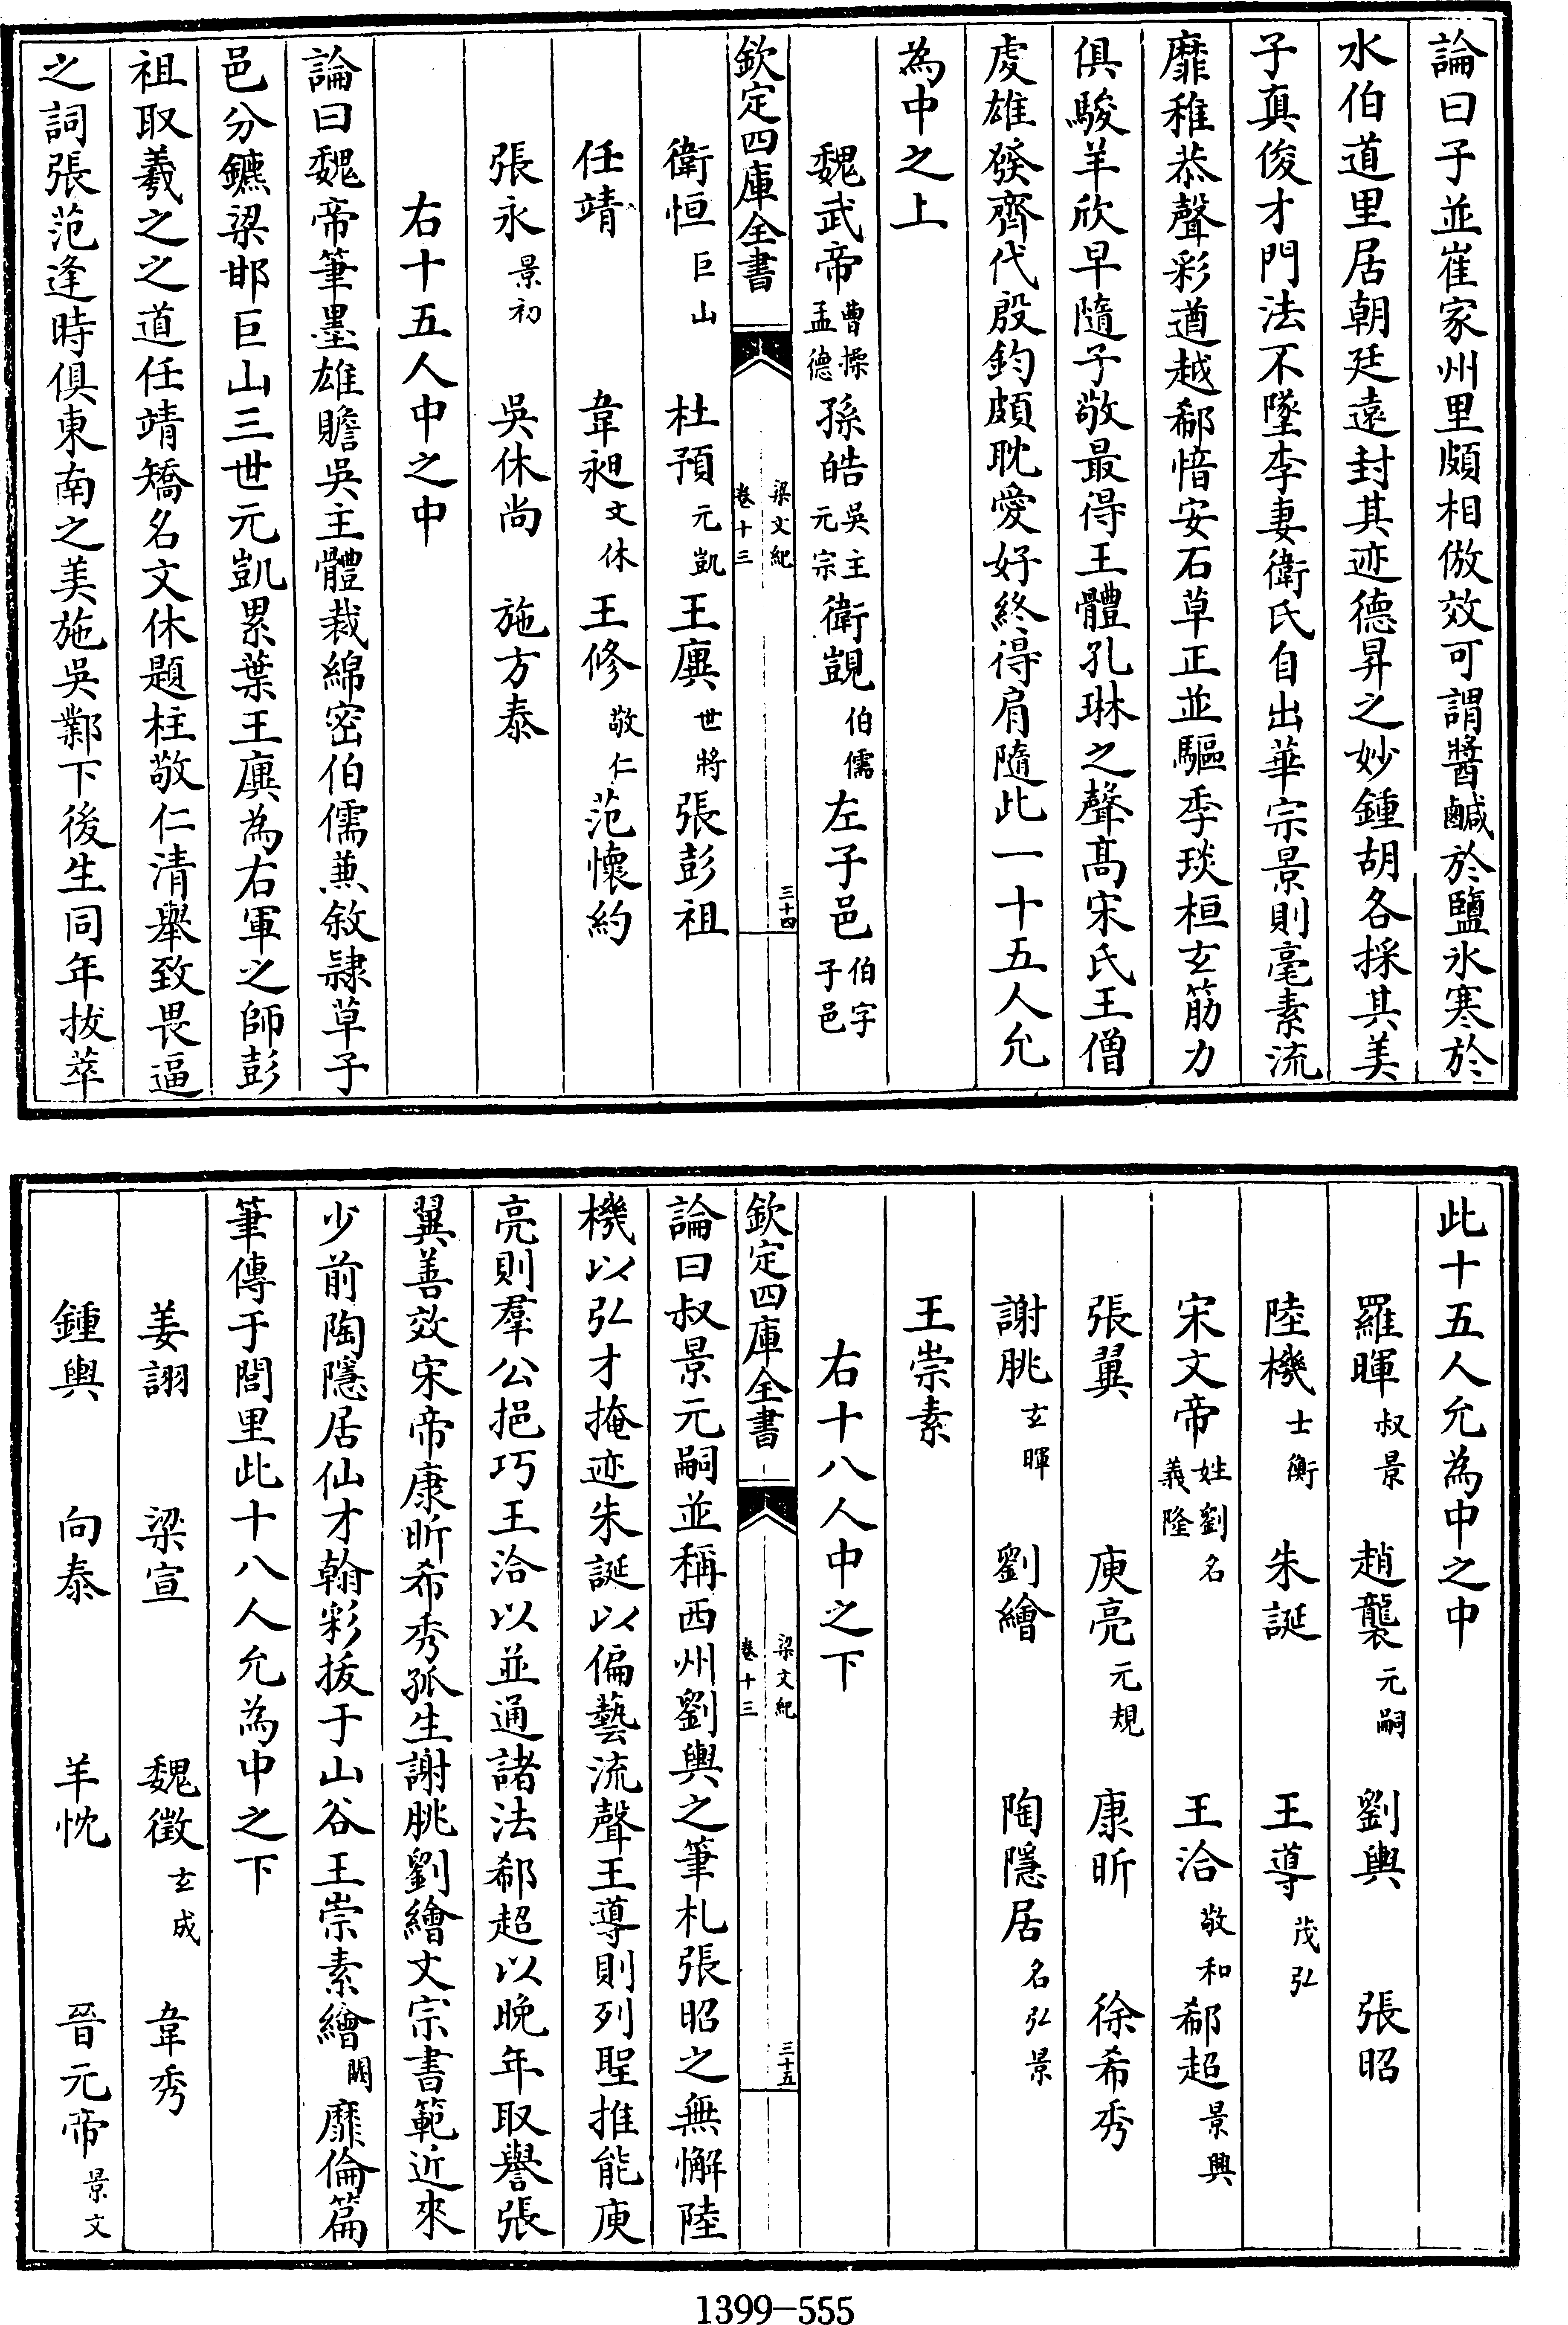 論曰子並崔家州里頗相倣效可謂醬鹹於鹽氷寒於
水伯道里居朝廷遠封其迹德昇之妙鍾胡各採其美
子真俊才門法不墜李妻衛氏自出華宗景則毫素流
靡稚恭聲彩遒越郗愔安石草正並驅季琰桓玄筋力
俱駿羊欣早隨子敬最得王體孔琳之聲髙宋氏王僧
虔雄發齊代殷鈞頗耽愛好終得肩隨此一十五人允
為中之上
魏武帝曹操孟德 孫皓吳主元宗 衛覬伯儒 左子邑伯字子邑
欽定四庫全書 梁文紀卷十三 三十四
衛恒巨山 杜預元凱 王廙世將 張彭祖
任靖 韋昶文休 王修敬仁 范懷約
張永景初 吳休尚 施方泰
右十五人中之中
論曰魏帝筆墨雄贍吳主體裁綿密伯儒兼敘隷草子
邑分鑣梁邯巨山三世元凱累葉王廙為右軍之師彭
祖取羲之之道任靖矯名文休題柱敬仁清舉致畏逼
之詞張范逢時俱東南之美施吳鄴下後生同年拔萃
此十五人允為中之中
羅暉叔景 趙襲元嗣 劉輿 張昭
陸機士衡 朱誕 王導茂弘
宋文帝姓劉名義隆 王洽敬和 郗超景興
張翼 庾亮元規 康昕 徐希秀
謝朓玄暉 劉繪 陶隱居名弘景
王崇素
右十八人中之下
欽定四庫全書 梁文紀卷十三 三十五
論曰叔景元嗣並稱西州劉輿之筆札張昭之無懈陸
機以弘才掩迹朱誕以偏藝流聲王導則列聖推能庾
亮則羣公挹巧王洽以並通諸法郗超以晚年取譽張
翼善效宋帝康昕希秀孤生謝朓劉繪文宗書範近來
少前陶隱居仙才翰彩拔于山谷王崇素繪闕靡倫篇
筆傳于閭里此十八人允為中之下
姜詡 梁宣 魏徵玄成 韋秀
鍾輿 向泰 羊忱 晉元帝景文
1399-555